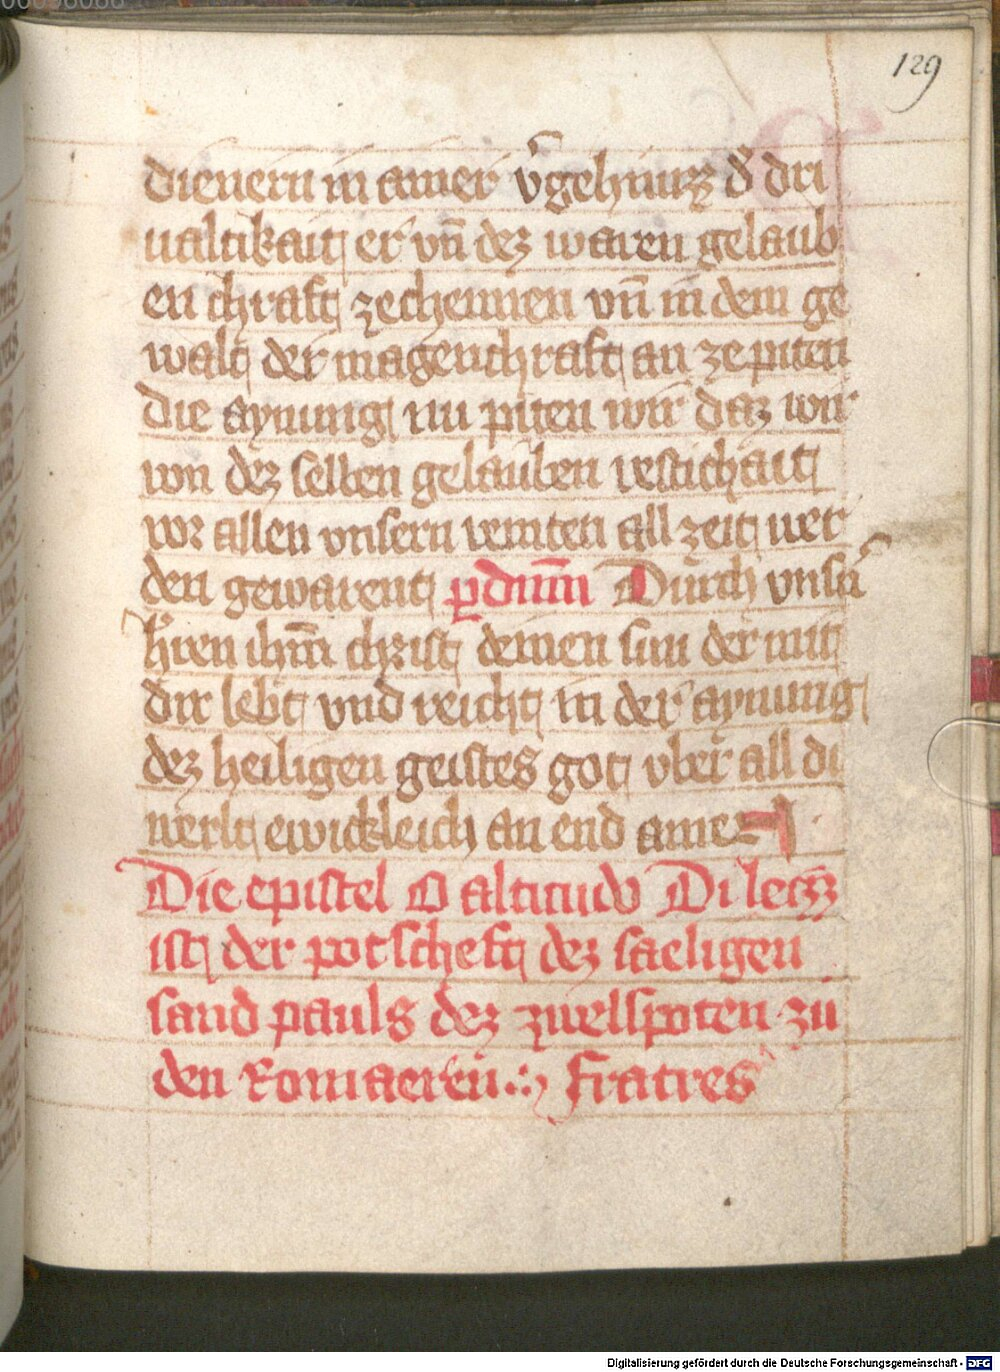 129
dienern in ainer v̄gehunz d̄ dri
ualtikait er vn̄ dez waren gelaub
en chraft zechennen vn̄ in dem ge
walt der magenchraft an ze piten
die aynung nu piten wir daz wir
von dez selben gelauben vestichait
vor allen vnsern veinten all zeit wer
den gewarent p̱ dnm̄ Durch vnsn̄
h̄ren ihm̄ christ deinen sun der mit
dir lebt vnd reicht in der aynung
dez heiligen geistes got vber all di
werlt ewickleich an end amen
Die epistel O altitudo Di lecz̄
ist der potscheft dez saeligen
sand pauls dez zwelfpoten zu
den Romaeren ·:· Fratres
Digitalisierung gefördert durch die Deutsche Forschungsgemeinschaft - DFG